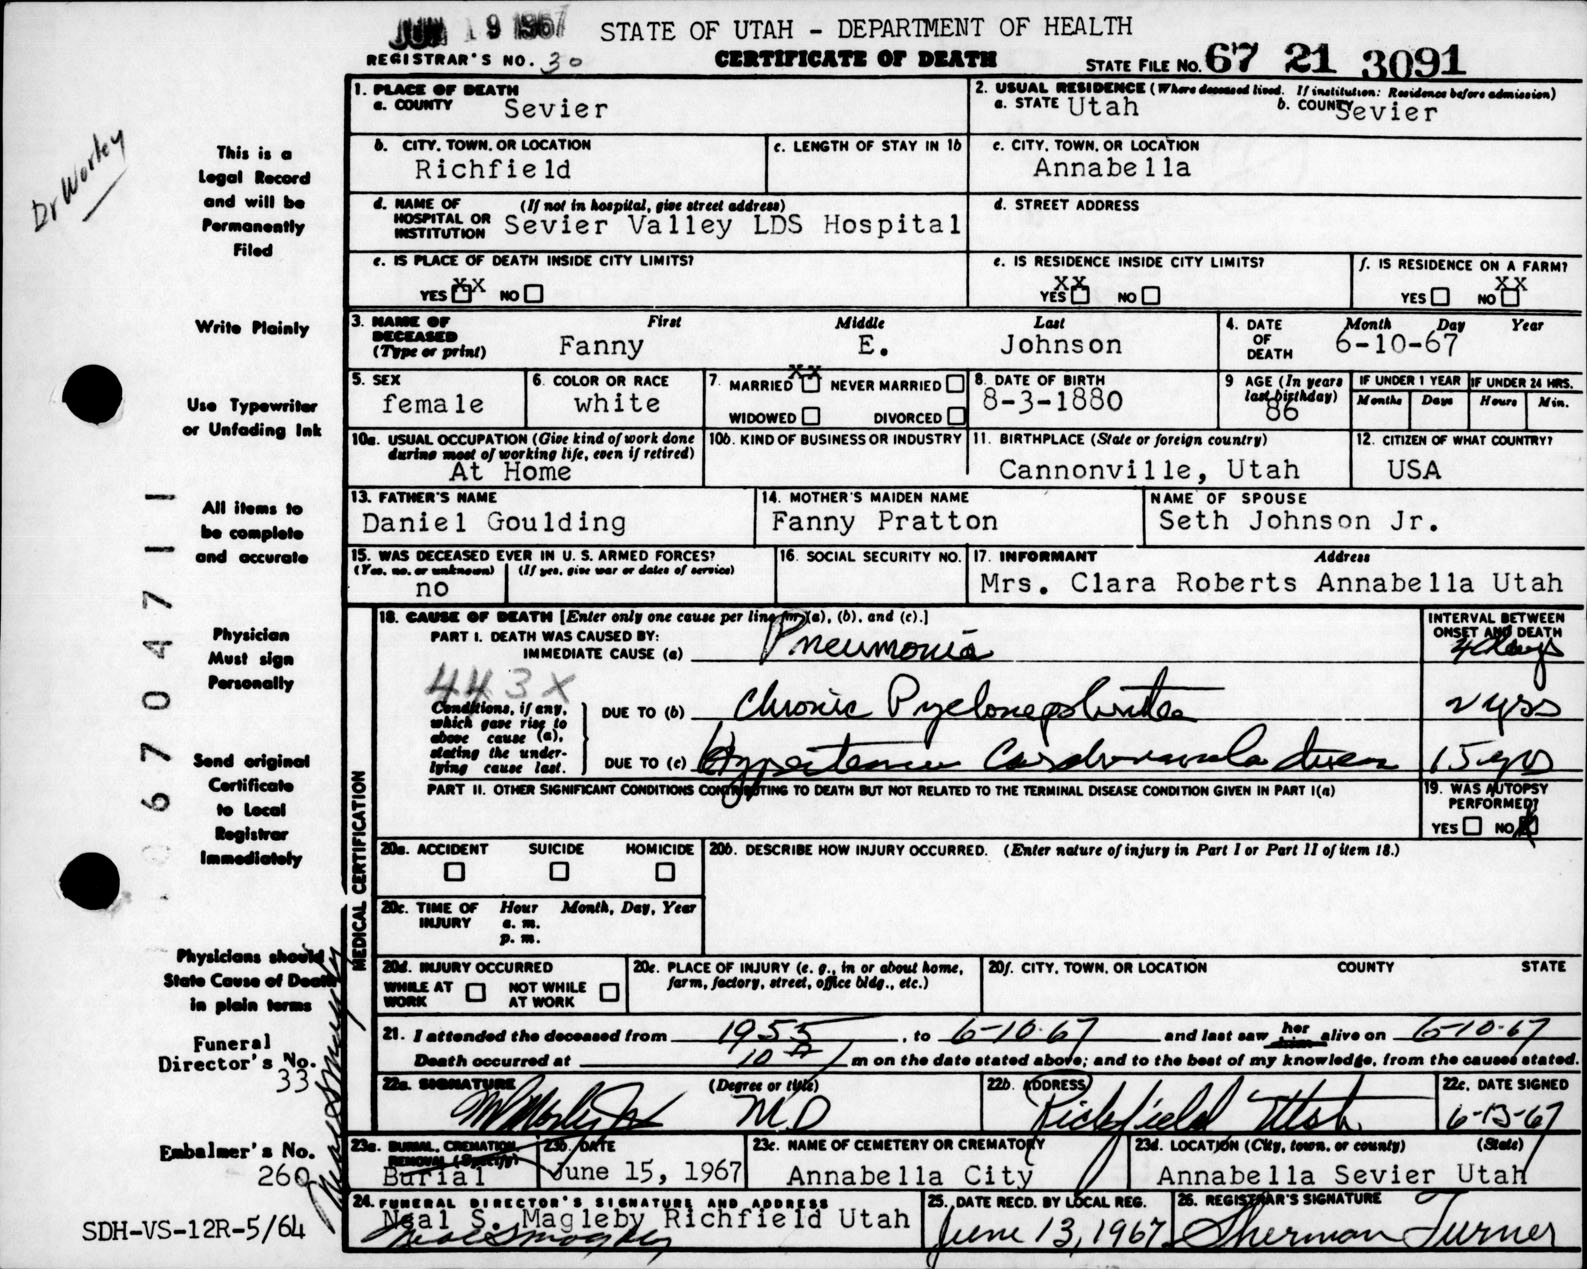 JUN 19 1967 STATE OF UTAH - DEPARTMENT OF HEALTH
REGISTRAR'S NO. 30 CERTIFICATE OF DEATH STATE FILE NO. 67 21 3091
Dr Worley
This is a
Legal Record
and will be
Permanently
Filed
Write Plainly
Use Typewriter
or Unfading Ink
All items to
be complete
and accurate
Physician
Must sign
Personally
Send original
Certificate
to Local
Registrar
Immediately
Physicians should
State Cause of Death
in plain terms
Funeral
Director's No.
33
Embalmer's No.
260
SDH-VS-12R-5/64
1. PLACE OF DEATH
a. COUNTY Sevier
2. USUAL RESIDENCE (Where deceased lived. If institution: Residence before admission)
a. STATE Utah b. COUNTY Sevier
b. CITY, TOWN, OR LOCATION
Richfield
c. LENGTH OF STAY IN 1b
c. CITY, TOWN, OR LOCATION
Annabella
d. NAME OF (If not in hospital, give street address)
HOSPITAL OR
INSTITUTION Sevier Valley LDS Hospital
d. STREET ADDRESS
e. IS PLACE OF DEATH INSIDE CITY LIMITS?
YES XX NO
e. IS RESIDENCE INSIDE CITY LIMITS?
YES XX NO
f. IS RESIDENCE ON A FARM?
YES NO XX
3. NAME OF First Middle Last
DECEASED
(Type or print) Fanny E. Johnson
4. DATE Month Day Year
OF
DEATH 6-10-67
5. SEX
female
6. COLOR OR RACE
white
7. MARRIED XX NEVER MARRIED
WIDOWED DIVORCED
8. DATE OF BIRTH
8-3-1880
9 AGE (In years
last birthday)
86
IF UNDER 1 YEAR IF UNDER 24 HRS.
Months Days Hours Min.
10a. USUAL OCCUPATION (Give kind of work done
during most of working life, even if retired)
At Home
10b. KIND OF BUSINESS OR INDUSTRY
11. BIRTHPLACE (State or foreign country)
Cannonville, Utah
12. CITIZEN OF WHAT COUNTRY?
USA
13. FATHER'S NAME
Daniel Goulding
14. MOTHER'S MAIDEN NAME
Fanny Pratton
NAME OF SPOUSE
Seth Johnson Jr.
15. WAS DECEASED EVER IN U. S. ARMED FORCES?
(Yes, no, or unknown) (If yes, give war or dates of service)
no
16. SOCIAL SECURITY NO.
17. INFORMANT Address
Mrs. Clara Roberts Annabella Utah
MEDICAL CERTIFICATION
18. CAUSE OF DEATH [Enter only one cause per line for (a), (b), and (c).]
PART I. DEATH WAS CAUSED BY:
IMMEDIATE CAUSE (a) Pneumonia
INTERVAL BETWEEN
ONSET AND DEATH
4 days
443X
Conditions, if any,
which gave rise to
above cause (a),
stating the under-
lying cause last.
DUE TO (b) Chronic Pyelonephritis 2 yrs
DUE TO (c) Hypertensive Cardiovascular disease 15 yrs
PART II. OTHER SIGNIFICANT CONDITIONS CONTRIBUTING TO DEATH BUT NOT RELATED TO THE TERMINAL DISEASE CONDITION GIVEN IN PART I(a)
19. WAS AUTOPSY
PERFORMED?
YES NO X
20a. ACCIDENT SUICIDE HOMICIDE
20b. DESCRIBE HOW INJURY OCCURRED. (Enter nature of injury in Part I or Part II of item 18.)
20c. TIME OF Hour Month, Day, Year
INJURY a. m.
p. m.
20d. INJURY OCCURRED
WHILE AT NOT WHILE
WORK AT WORK
20e. PLACE OF INJURY (e. g., in or about home,
farm, factory, street, office bldg., etc.)
20f. CITY, TOWN, OR LOCATION COUNTY STATE
21. I attended the deceased from 1955, to 6-10-67 and last saw her him alive on 6-10-67
Death occurred at 10 m on the date stated above; and to the best of my knowledge, from the causes stated.
22a. SIGNATURE (Degree or title)
M.D
22b. ADDRESS
Richfield Utah
22c. DATE SIGNED
6-13-67
23a. BURIAL, CREMATION,
REMOVAL (Specify)
Burial
23b. DATE
June 15, 1967
23c. NAME OF CEMETERY OR CREMATORY
Annabella City
23d. LOCATION (City, town, or county) (State)
Annabella Sevier Utah
24. FUNERAL DIRECTOR'S SIGNATURE AND ADDRESS
Neal S. Magleby Richfield Utah
Neal S Magleby
25. DATE RECD. BY LOCAL REG.
June 13, 1967
26. REGISTRAR'S SIGNATURE
Sherman Turner